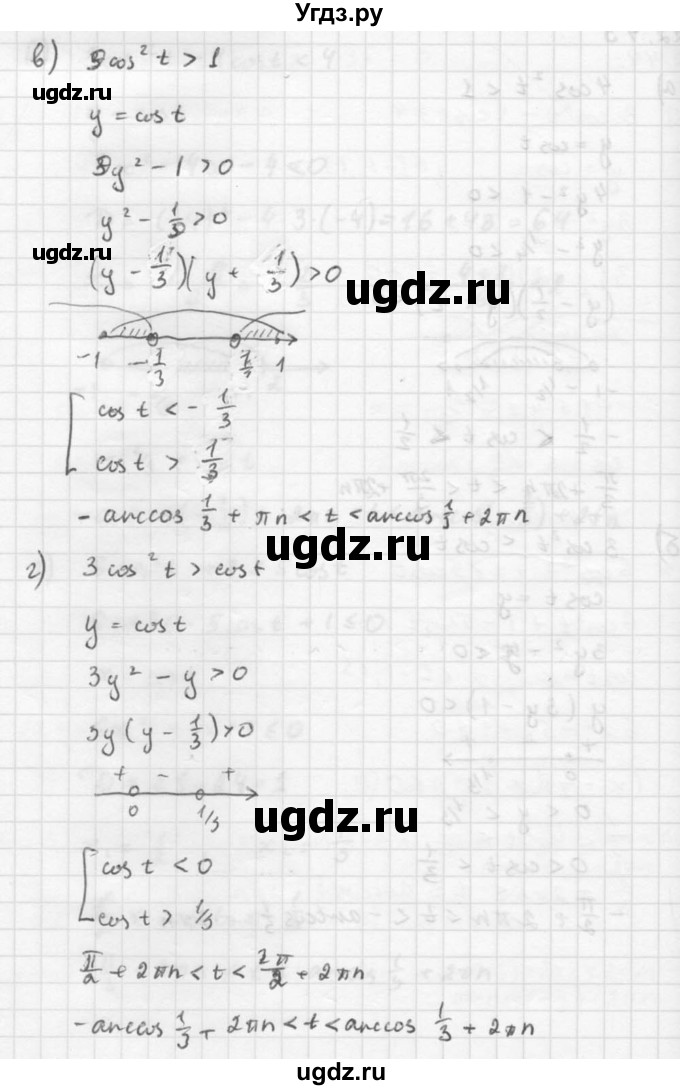 Угдз.ру
в) 9cos² t > 1
ugdz.ru
y = cos t
9y² - 1 > 0
y² - 1/9 > 0
ugdz.ru
(y - 1/3)(y + 1/3) > 0
ugdz.ru
-1 -1/3 1/3 1
cos t < - 1/3
cos t > 1/3
- arccos 1/3 + πn < t < arccos 1/3 + 2πn
ugdz.ru
г) 3cos² t > cos t
y = cos t
3y² - y > 0
3y(y - 1/3) > 0
+ - +
0 1/3
ugdz.ru
cos t < 0
cos t > 1/3
π/2 + 2πn < t < 2π/2 + 2πn
- arccos 1/3 + 2πn < t < arccos 1/3 + 2πn
ugdz.ru